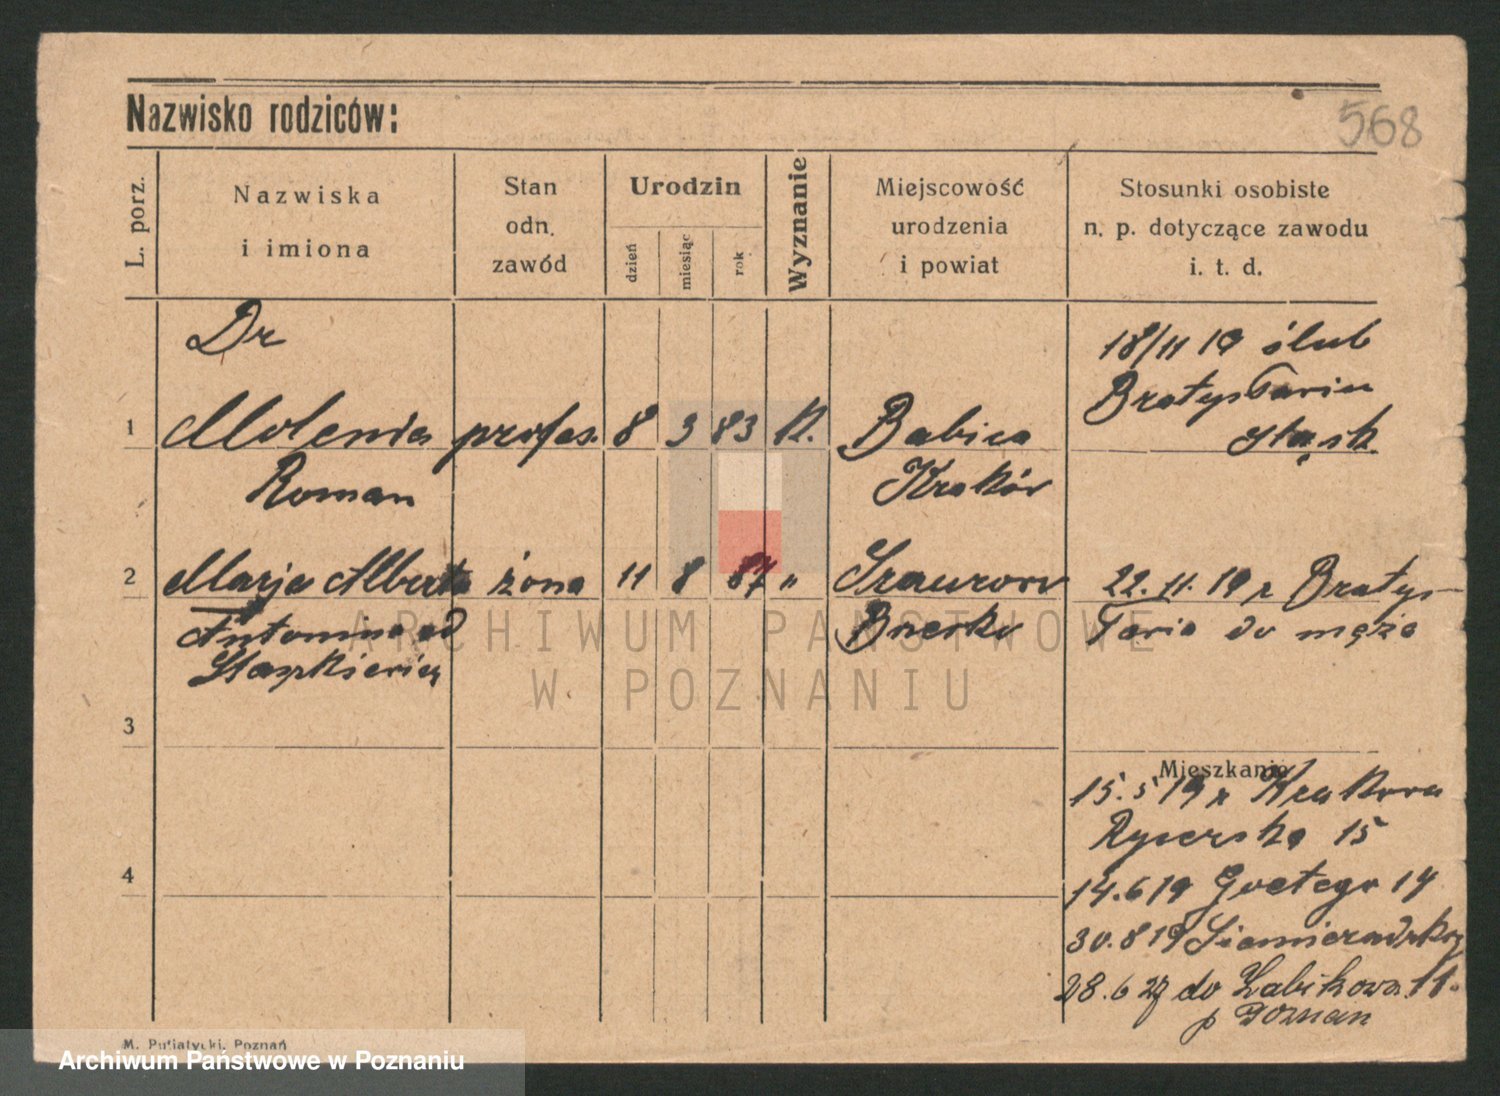 568
Nazwisko rodziców:
L. porz.
Nazwiska
i imiona
Stan
odn.
zawód
Urodzin
dzień
miesiąc
rok
Wyznanie
Miejscowość
urodzenia
i powiat
Stosunki osobiste
n. p. dotyczące zawodu
i. t. d.
Dr
18/11 19 ślub
1 profes. 8 3 83 K. Babica
Roman Kraków
2 Marja Alberta żona 11 8 87 " 22.11.19 z Bratys-
Brzesko do męża
3
Mieszkanie
15.5 19 z Krakowa
Rycerska 15
4
14.6 19
30.8 19
28.6 27 do Żabikowa 11.
p Poznan
M. Putiatycki, Poznań
ARCHIWUM PAŃSTWOWE
W POZNANIU
Archiwum Państwowe w Poznaniu